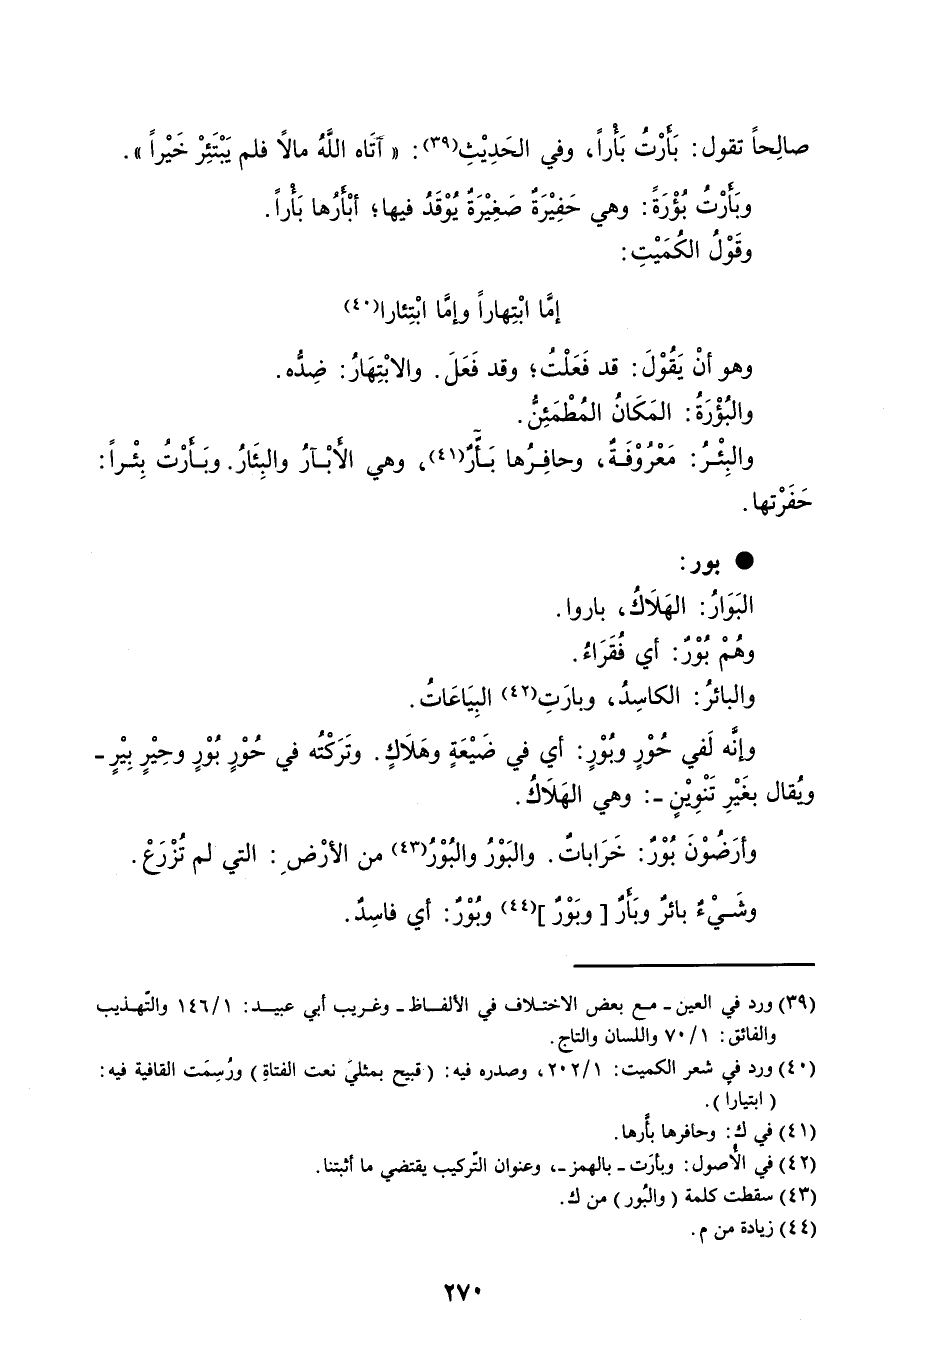 صالِحاً تقول: بَأَرْتُ بَأْراً، وفي الحَدِيْثِ(٣٩): « آتَاه اللَّهُ مالًا فلم يَبْتَئِرْ خَيْراً ».
وبَأَرْتُ بُؤْرَةً: وهي حَفِيْرَةٌ صَغِيْرَةٌ يُوْقَدُ فيها؛ أبْأَرُها بَأْراً.
وقَوْلُ الكُمَيْتِ:
إمَّا ابْتِهاراً وإمَّا ابْتِئارا(٤٠)
وهو أنْ يَقُوْلَ: قد فَعَلْتُ؛ وقد فَعَلَ. والابْتِهَارُ: ضِدُّه.
والبُؤْرَةُ: المَكَانُ المُطْمَئِنُّ.
والبِئْرُ: مَعْرُوْفَةٌ، وحافِرُها بَأّرٌ(٤١)، وهي الأَبْآرُ والبِئَارُ. وبَأَرْتُ بِئْراً:
حَفَرْتها.
● بور:
البَوَارُ: الهَلَاكُ، باروا.
وهُمْ بُوْرٌ: أي فُقَرَاءُ.
والبائرُ: الكاسِدُ، وبارَتِ(٤٢) البِيَاعَاتُ.
وإنَّه لَفي حُوْرٍ وبُوْرٍ: أي في ضَيْعَةٍ وهَلَاكٍ. وتَرَكْتُه في حُوْرٍ بُوْرٍ وحِيْرٍ بِيْرٍ -
ويُقال بغَيْرِ تَنْوِيْنٍ -: وهي الهَلَاكُ.
وأرَضُوْنَ بُوْرٌ: خَرَاباتٌ. والبَوْرُ والبُوْرُ(٤٣) من الأرْضِ: التي لم تُزْرَعْ.
وشَيْءٌ بائرٌ وبَأَرٌ [ وبَوْرٌ ](٤٤) وبُوْرٌ: أي فاسِدٌ.
(٣٩) ورد في العين - مع بعض الاختلاف في الألفاظ - وغريب أبي عبيد: ١/ ١٤٦ والتّهذيب
والفائق: ١/ ٧٠ واللسان والتاج.
(٤٠) ورد في شعر الكميت: ١/ ٢٠٢، وصدره فيه: ( قبيح بمثليَ نعت الفتاةِ ) ورُسِمَت القافية فيه:
( ابتيارا ).
(٤١) في ك: وحافرها بأّرها.
(٤٢) في الأُصول: وبأرَت - بالهمز -، وعنوان التّركيب يقتضي ما أثبتنا.
(٤٣) سقطت كلمة ( والبُور ) من ك.
(٤٤) زيادة من م.
٢٧٠